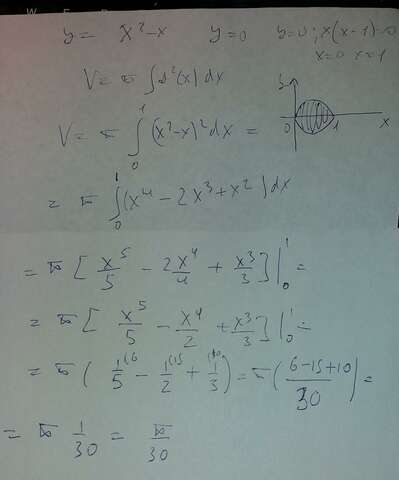 y = x² - x    y = 0    y = 0; x(x-1) = 0
x = 0  x = 1
V = π ∫ s²(x) dx
V = π ∫₀¹ (x² - x)² dx =
0  1  x
= π ∫₀¹ (x⁴ - 2x³ + x²) dx
= π [ x⁵/5 - 2x⁴/4 + x³/3 ] |₀¹ =
= π [ x⁵/5 - x⁴/2 + x³/3 ] |₀¹ =
= π ( 1⁽⁶/5 - 1⁽¹⁵/2 + 1⁽¹⁰/3 ) = π ( (6 - 15 + 10)/30 ) =
= π 1/30 = π/30